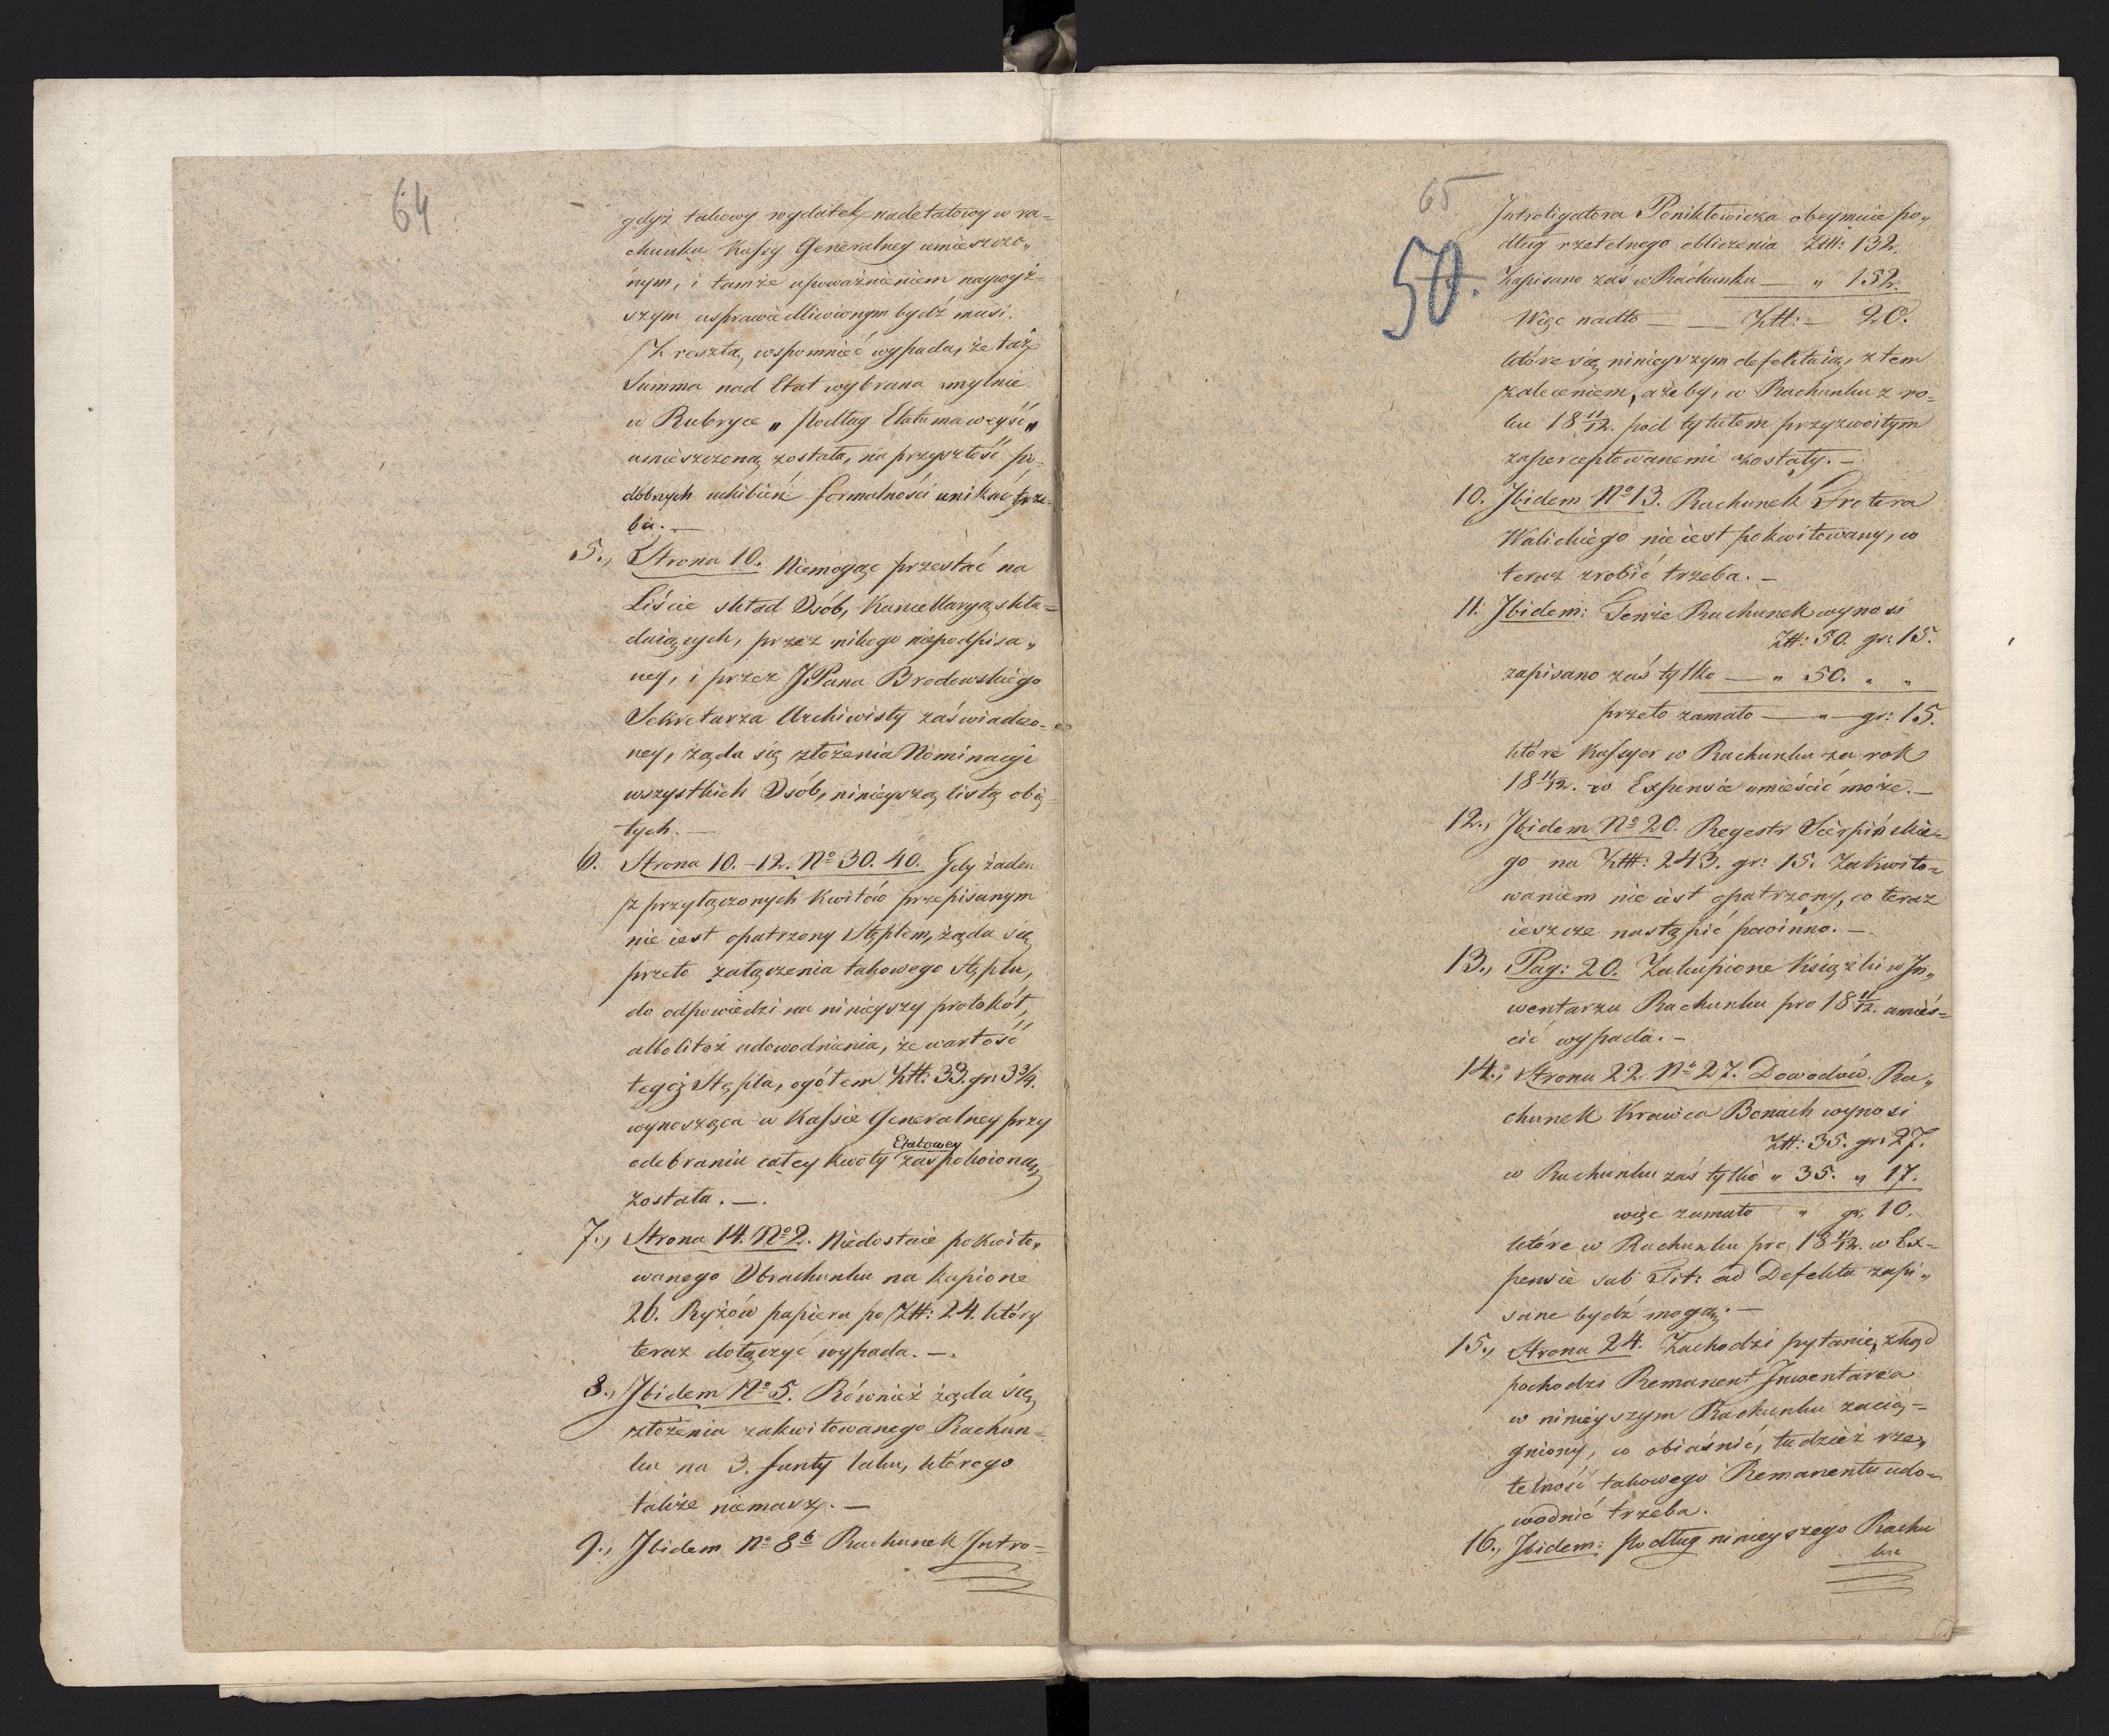 64
gdyż takowy wydatek nadetatowy w ra=
chunku Kassy Generalney umieszczo„
nym, i tamże upoważnieniem naywyż=
szym usprawiedliwionym bydź musi.
Z resztą wspomnieć wypada, że taż
Summa nad Etat wybrana mylnie
w Rubryce „ Podług Etatu ma weyść „
umieszczoną została, na przyszłość po=
dobnych uchibień formalności unikać trze=
ba. —
5., Strona 10. Niemogąc przestać na
Liście skład Osób, Kancellaryą skła=
daiących, przez nikogo niepodpisa„
ney, i przez JPana Brodowskiego
Sekretarza Archiwisty zaświadczo=
ney, żąda się złożenia Nominacyi
wszystkich Osób, ninieyszą listą obię=
tych. —
6. Strona 10.-12. No 30. 40. Gdy żaden
z przyłączonych Kwitów przepisanym
nie iest opatrzony Stęplem, żąda się
przeto załączenia takowego Stęplu,
do odpowiedzi na ninieyszy protokół,
albo liteż udowodnienia, że wartość
tegoż Stępla, ogółem Złł: 33. gr. 3 3/4.
wynosząca w Kassie Generalney przy
odebraniu całey kwoty Etatowey zaspokoioną
została. —.
7., Strona 14. No 2. Niedostaie pokwito„
wanego Obrachunku na kupione
26. Ryżów papieru po Złł: 24. który
teraz dołączyć wypada. —.
8., Ibidem No 5. Również żąda się
złożenia zakwitowanego Rachun=
ku na 3. funty laku, którego
także niemasz. —
9., Ibidem No 8 b Rachunek Intro=
65
50.
Introligatora Poniktowicza obeymuie po„
dług rzetelnego obliczenia Złł: 132.
Zapisano zaś w Rachunku — „ 152.
Więc nadto — — Złł: — 20.
które się ninieyszym defektuią, z tem
zaleceniem, ażeby, w Rachunku z ro=
ku 18 11/12. pod tytułem przyzwoitym
zaperceptowanemi zostały. —
10. Ibidem No 13. Rachunek Frotera
Walickiego nie iest pokwitowany, co
teraz zrobić trzeba. —
11. Ibidem: Tenże Rachunek wynosi
Złł: 50. gr: 15.
zapisano zaś tylko — „ 50. „ „
przeto zamało — „ — gr: 15.
które Kassyer w Rachunku za rok
18 11/12. w Expensie umieścić może. —
12., Ibidem No 20. Regestr Sierpińskie=
go na Złł: 243. gr: 15. Zakwito=
waniem nie iest opatrzony, co teraz
ieszcze nastąpić powinno. —
13., Pag: 20. Zakupione Książki w In„
wentarzu Rachunku pro 18 11/12. umieś=
cić wypada. —
14., Strona 22. No 27. Dowodów. Ra„
chunek Krawca Bonach wynosi
Złł: 35. gr: 27.
w Rachunku zaś tylko „ 35. „ 17.
więc zamało „ gr. 10.
które w Rachunku pro 18 11/12. w Ex=
pensie sub Tit: ad Defekta zapi„
sane bydź mogą. —
15., Strona 24. Zachodzi pytanie, zkąd
pochodzi Remanent Inwentarza
w ninieyszym Rachunku zacią=
gniony, co obiaśnić, tudzież rze„
telność takowego Remanentu udo=
wodnić trzeba.
16., Ibidem: Podług ninieyszego Rachu
ku